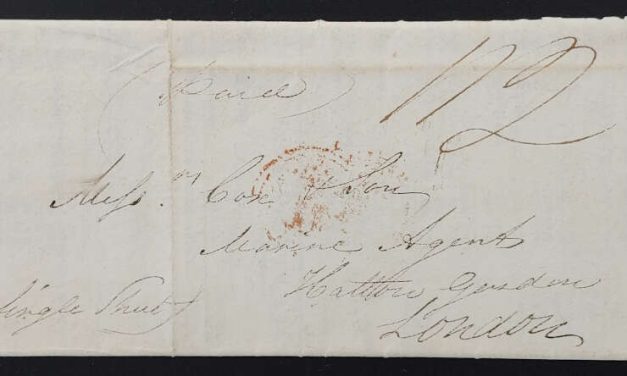 (Paid)
1/2
Mess.rs Cox & Son
Marine Agents
Hatton Garden
London
Single Sheet